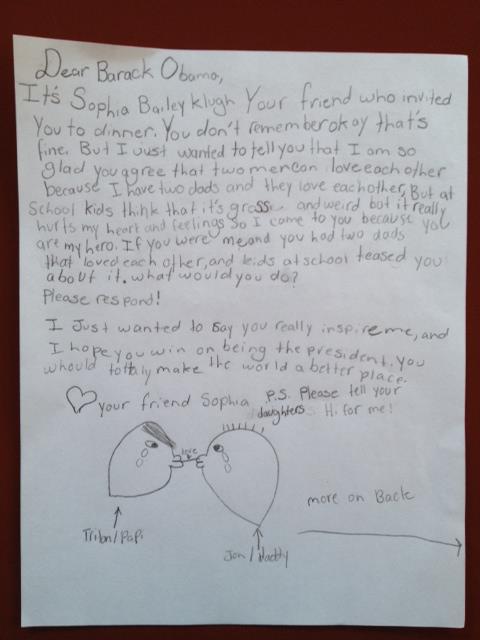 Dear Barack Obama,
It's Sophia Bailey Klugh Your friend who invited
You to dinner. You don't remember okay that's
fine. But I Just wanted to tell you that I am so
glad you agree that two men can love each other
because I have two dads and they love each other, But at
School kids think that it's gross and weird but it really
hurts my heart and feelings So I come to you because you
are my hero. If you were me and you had two dads
that loved each other, and kids at school teased you
about it. what would you do?
Please respond!
I Just wanted to say you really inspire me, and
I hope you win on being the president. You
whould tottaly make the world a better place.
your friend Sophia
P.S. Please tell your
daughters Hi for me!
love
more on Back
/Papi
Jon/daddy